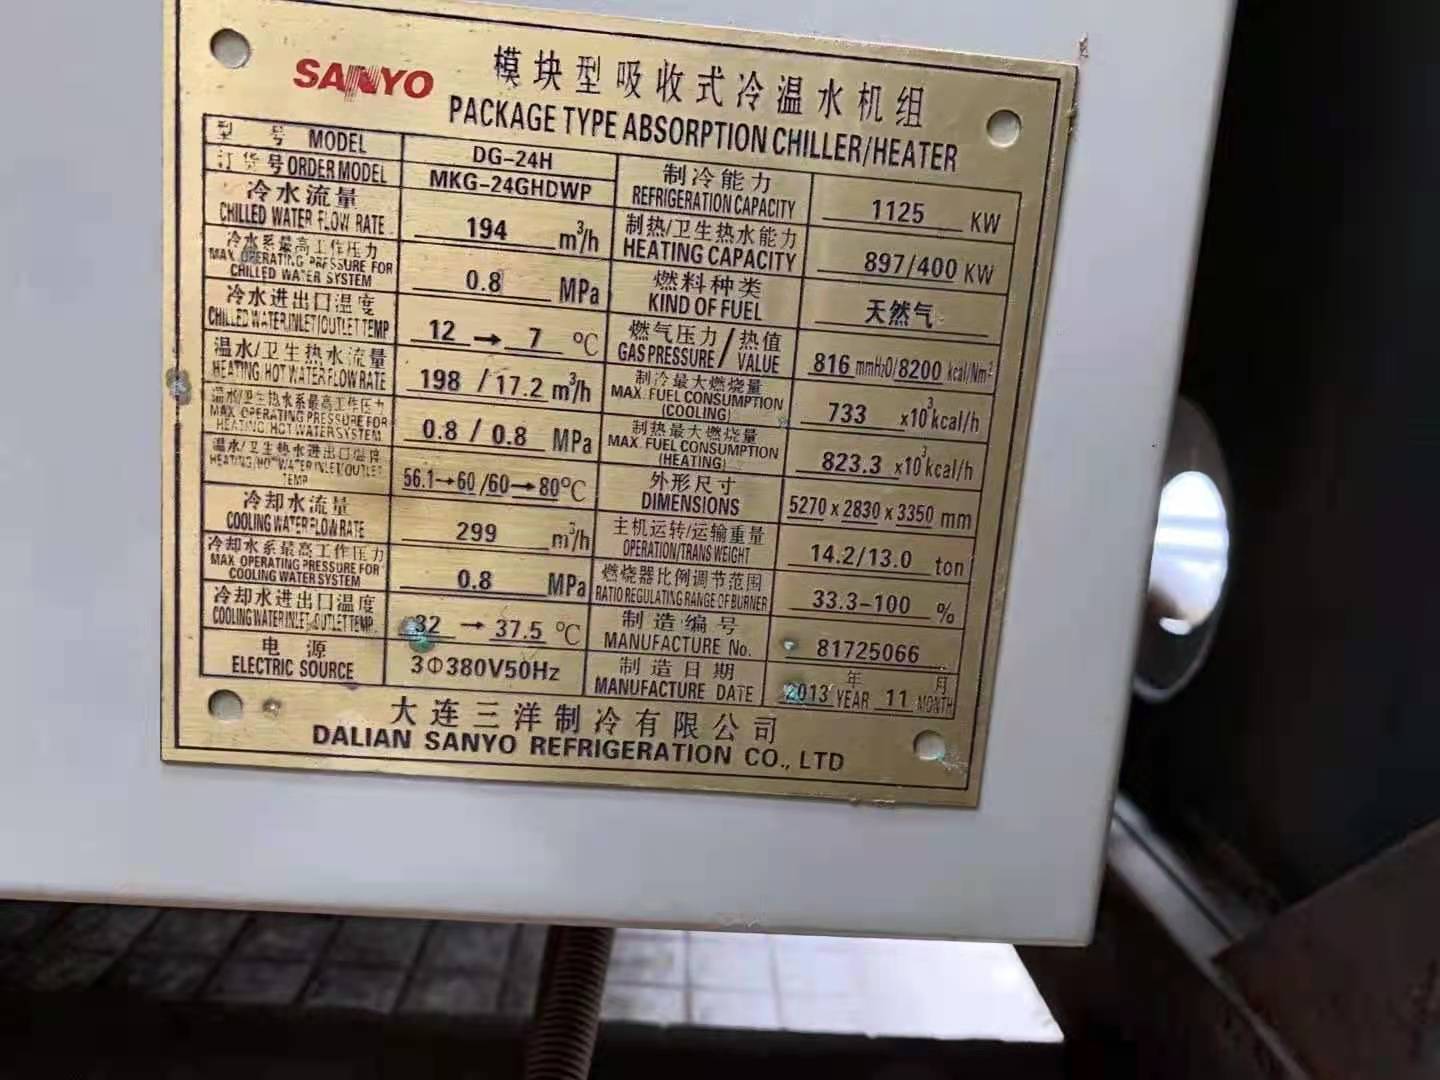 SANYO
模块型吸收式冷温水机组
PACKAGE TYPE ABSORPTION CHILLER/HEATER
型 号 MODEL
DG-24H
订货号 ORDER MODEL
MKG-24GHDWP
冷水流量
CHILLED WATER FLOW RATE
194 m³/h
冷水系最高工作压力
MAX. OPERATING PRESSURE FOR
CHILLED WATER SYSTEM
0.8 MPa
冷水进出口温度
CHILLED WATER INLET/OUTLET TEMP
12 → 7 ℃
温水/卫生热水流量
HEATING/HOT WATER FLOW RATE
198 / 17.2 m³/h
温水/卫生热水系最高工作压力
MAX. OPERATING PRESSURE FOR
HEATING/HOT WATER SYSTEM
0.8 / 0.8 MPa
温水/卫生热水进出口温度
HEATING/HOT WATER INLET/OUTLET
TEMP
56.1→60 /60→80℃
冷却水流量
COOLING WATER FLOW RATE
299 m³/h
冷却水系最高工作压力
MAX. OPERATING PRESSURE FOR
COOLING WATER SYSTEM
0.8 MPa
冷却水进出口温度
COOLING WATER INLET/OUTLET TEMP.
32 → 37.5 ℃
电 源
ELECTRIC SOURCE
3Φ380V50Hz
制冷能力
REFRIGERATION CAPACITY
1125 KW
制热/卫生热水能力
HEATING CAPACITY
897/400 KW
燃料种类
KIND OF FUEL
天然气
燃气压力/热值
GAS PRESSURE/VALUE
816 mmH₂O/8200 kcal/Nm³
制冷最大燃烧量
MAX. FUEL CONSUMPTION
(COOLING)
733 x10³kcal/h
制热最大燃烧量
MAX. FUEL CONSUMPTION
(HEATING)
823.3 x10³kcal/h
外形尺寸
DIMENSIONS
5270 x 2830 x 3350 mm
主机运转/运输重量
OPERATION/TRANS WEIGHT
14.2/13.0 ton
燃烧器比例调节范围
RATIO REGULATING RANGE OF BURNER
33.3-100 %
制造编号
MANUFACTURE No.
81725066
制造日期
MANUFACTURE DATE
2013 年 YEAR 11 月 MONTH
大连三洋制冷有限公司
DALIAN SANYO REFRIGERATION CO., LTD